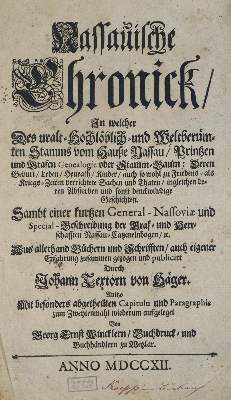 Nassauische
Chronick/
In welcher
Des uralt-Hochlöblich-und Weltberüm-
ten Stamms vom Hauße Nassau/ Printzen
und Grafen Genealogie oder Stamm-Baum: Deren
Geburt/ Leben/ Heurath/ Kinder/ auch so wohl zu Friedens- als
Kriegs-Zeiten verrichtete Sachen und Thaten/ ingleichen de-
ren Absterben und sonst denckwürdige
Geschichten.
Sambt einer kurtzen General-Nassoviæ und
Special-Beschreibung der Graf- und Herr-
schafften Nassau-Catzenelnbogen/ ꝛc.
Aus allerhand Büchern und Schrifften/ auch eigener
Erfahrung zusammen gezogen und publicirt
Durch
Johann Textorn von Häger.
Anitzo
Mit besonders abgetheilten Capituln und Paragraphis
zum Zweytenmahl wiederum aufgelegt
Von
Georg Ernst Wincklern/ Buchdruck- und
Buchhändlern zu Wetzlar.
ANNO MDCCXII.